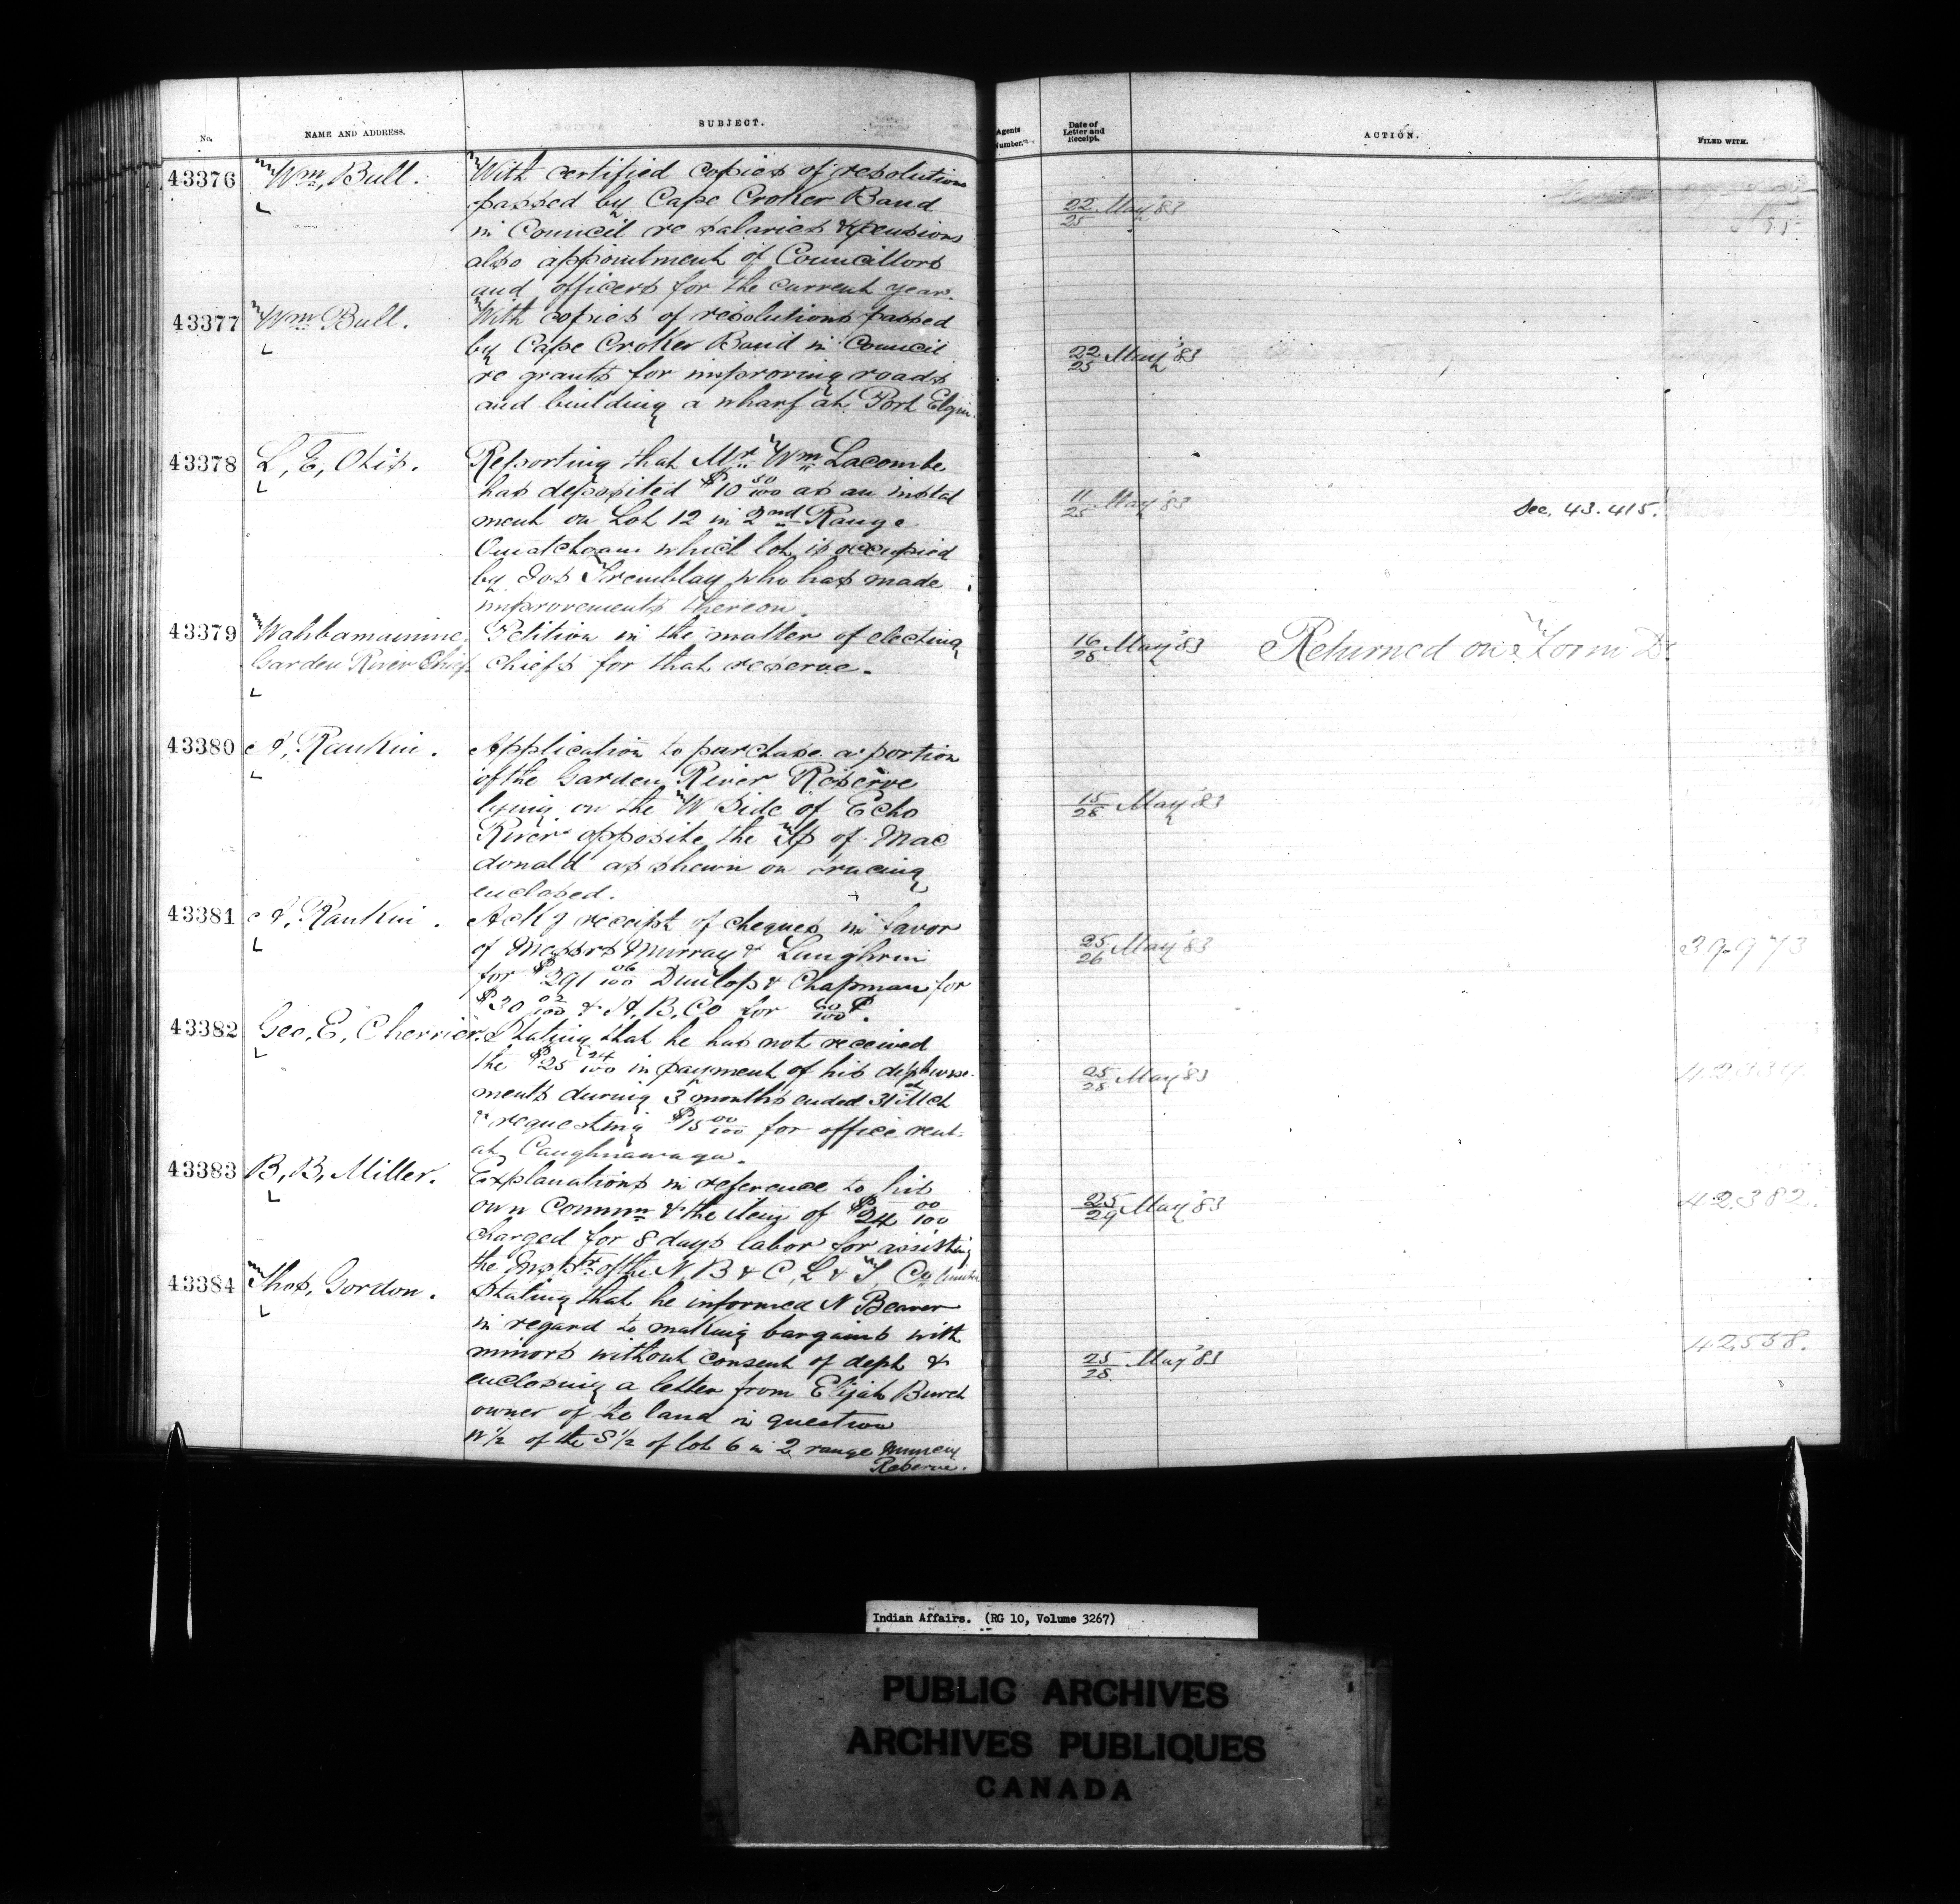 No.
NAME AND ADDRESS.
SUBJECT.
Agents Number.
Date of Letter and Receipt.
ACTION.
FILED WITH.
43376
Wm. Bull.
With certified copies of resolutions
passed by Cape Croker Band
in Council re salaries & pensions
also appointment of Councillors
and officers for the current year.
22/25 May '83
43377
Wm Bull.
With copies of resolutions passed
by Cape Croker Band in Council
re grants for improving roads
and building a wharf at Port Elgin.
22/25 May '83
43378
L, E, Otis.
Reporting that Mr. Wm Lacombe
has deposited $10 50/100 as an instal
ment on Lot 12 in 2nd Range
Ouiatchouan which lot is occupied
by Jos Tremblay who has made
improvements thereon.
11/25 May '83
See, 43.415.
43379
Wahbamamine
Garden River Chief.
Petition in the matter of electing
chiefs for that reserve.
16/28 May '83
Returned on Form D.
43380
A, Rankin.
Application to purchase a portion
of the Garden River Reserve
lying on the W Side of Echo
River opposite the Tp of Mac
donald as shewn on tracing
enclosed.
15/28 May '83
43381
A, Rankin.
Ackg receipt of cheques in favor
of Messrs Murray & Laughrin
for $291 06/100 Dunlop & Chapman for
$30 02/100 & H, B, Co for 60/100 $.
25/26 May '83
39.973
43382
Geo, E, Cherrier.
Stating that he has not received
the $25 24/100 in payment of his disburse-
ments during 3 months ended 31st Mch
& requesting $15 00/100 for office rent
at Caughnawaga.
25/28 May '83
43383
B, B, Miller.
Explanations in reference to his
own Commn & the item of $24 00/100
charged for 8 days labor for assisting
the Inspr. of the N, B & C, L & T, Co
25/29 May '83
42.382.
43384
Thos, Gordon.
Stating that he informed N Beaver
in regard to making bargains with
minors without consent of dept &
enclosing a letter from Elijah Burch
owner of the land in question
W 1/2 of the S 1/2 of lot 6 in 2 range Muncey
Reserve.
25/28 May '83
42558.
Indian Affairs. (RG 10, Volume 3267)
PUBLIC ARCHIVES
ARCHIVES PUBLIQUES
CANADA